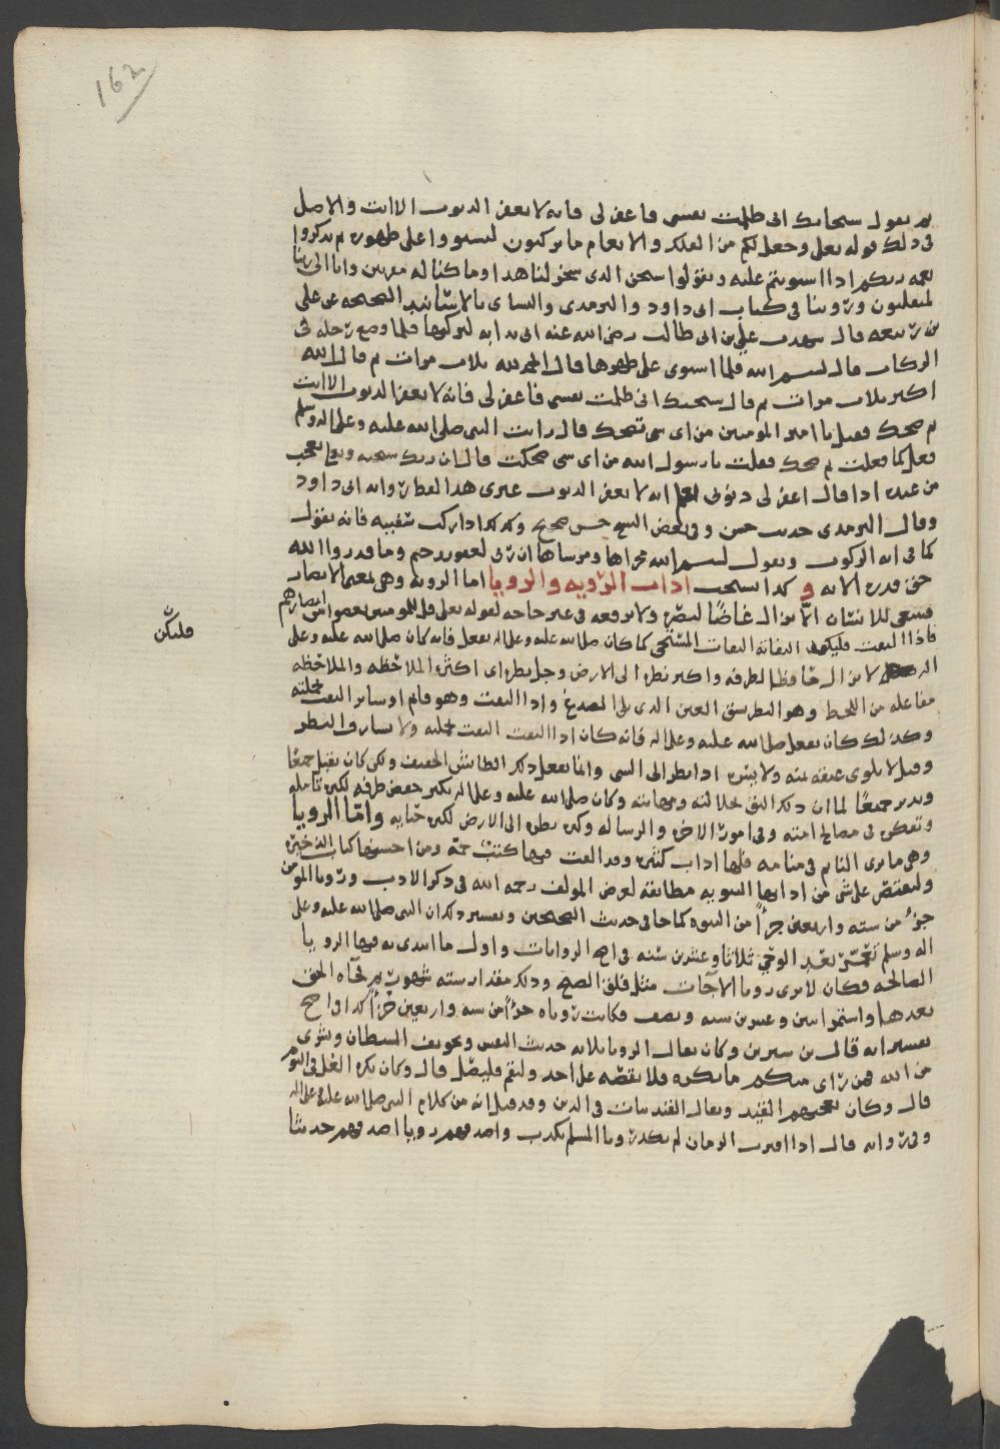 162
ثم يقول سبحانك اني ظلمت نفسي فاغفر لي فانه لا يغفر الذنوب الا انت والاصل
في ذلك قوله تعلى وجعل لكم من الفلك والانعام ما تركبون لتستووا على ظهوره ثم تذكروا
نعمه ربكم اذا استويتم عليه وتقولوا سبحن الذي سخر لنا هذا وما كنا له مقرنين وانا الى ربنا
لمنقلبون وروينا في كتاب ابي داود والترمذي والنساي بالاسانيد الصحيحه عن على
بن ربيعه قال شهدت علي بن ابي طالب رضي الله عنه اتى بدابه ليركبها فلما وضع رجله في
الركاب قال بسم الله فلما استوى على ظهرها قال الحمد لله ثلاث مرات ثم قال الله
اكبر ثلاث مرات ثم قال سبحنك اني ظلمت نفسي فاغفر لي فانه لا يغفر الذنوب الا انت
ثم ضحك فقيل يا امير المومنين من اي شي تضحك قال رايت النبي صلى الله عليه وعلى اله وسلم
فعل كما فعلت ثم ضحك فقلت يا رسول الله من اي شي ضحكت قال ان ربك سبحنه وتعا يعجب
من عبده اذا قال اغفر لي ذنوبي يعلم انه لا يغفر الذنوب غيري هذا لفظ رواية ابي داود
وقال الترمذي حديث حسن وفي بعض النسخ حسن صحيح وكذلك اذا ركب سفينه فانه يقول
كما في ايه الركوب ويقول بسم الله مجراها ومرساها ان ربي لغفور رحيم وما قدروا الله
حق قدره الايه و كذا يستحب اداب الرؤيه والرويا اما الرويه وهي بمعنى الابصار
فينبغي للانسان الا يزال غاضًا لبصره ولا يرفعه في غير حاجه لقوله تعلى قل للمومنين يغضوا من ابصارهم
فاذا التفت فليكن التفاته التفات المستحي كما كان صلى الله عليه وعلى اله يفعل فانه كان صلى الله عليه وعلى
اله لا يزال خافظ الطرفه واكثر نظره الى الارض وجل نظره اي اكثره الملاحظه والملاحظه
مفاعله من اللحظ وهو النظر بشق العين الذي يلي الصدغ واذا التفت وهو قايم او ساير التفت بجملته
وكذلك كان يفعل صلى الله عليه وعلى اله فانه كان اذا التفت التفت بجمله ولا يسارق النظر
وقيل لا يلوى عنقه يمنه ولا يسره اذا نظر الى الشي وانما يفعل ذلك الطايش الخفيف ولكن كان يقبل جمعًا
ويدبر جميعًا لما ان ذلك اليق بجلالته ومهابته وكان صلى الله عليه وعلى اله يكثر خفض طرفه لكثره تامله
وتفكره في مصالح امته وفي امور الاخره والرساله وكثره نظره الى الارض لكثره حيايه واما الرويا
وهي ما يرى النايم في منامه فلها اداب كثيره وقد الفت فيها كتب جمه ومن احسنها كتاب الذخيره
ولنقتصر على شي من ادابها النبويه مطابقه لغرض المولف رحمه الله في ذكر الادب ورؤيا المومن
جزءٌ من سته واربعين جزءًا من النبوه كما جا في حديث الصحيحين وتفسير ذلك ان النبي صلى الله عليه وعلى
اله وسلم عمّر بعد الوحي ثلاثا وعشرين سنه في اصح الروايات واول ما ابتدى به فيها الرويا
الصالحه فكان لا يرى رويا الا جات مثل فلق الصبح وذلك مقدار سته شهور ثم جآه الحق
بعدها واستمر اثنين وعشرين سنه ونصف فكانت رؤياه جزءًا من سته واربعين جزءًا كذا واضح
تفسير انه قال بن سيرين وكان يقال الرويا ثلاثه حديث النفس وتخويف الشيطان وبشرى
من الله فمن رأى منكم ما يكره فلا يقصه على احد وليقم فليصل قال وكان يكره الغل في النوم
قال وكان يعجبهم القيد ويقال القيد ثبات في الدين وقد قيل انه من كلام النبي صلى الله عليه وعلى اله
وفي رواية قال اذا اقترب الزمان لم تكد رويا المسلم تكذب واصدقهم رويا اصدقهم حديثا
فليكن